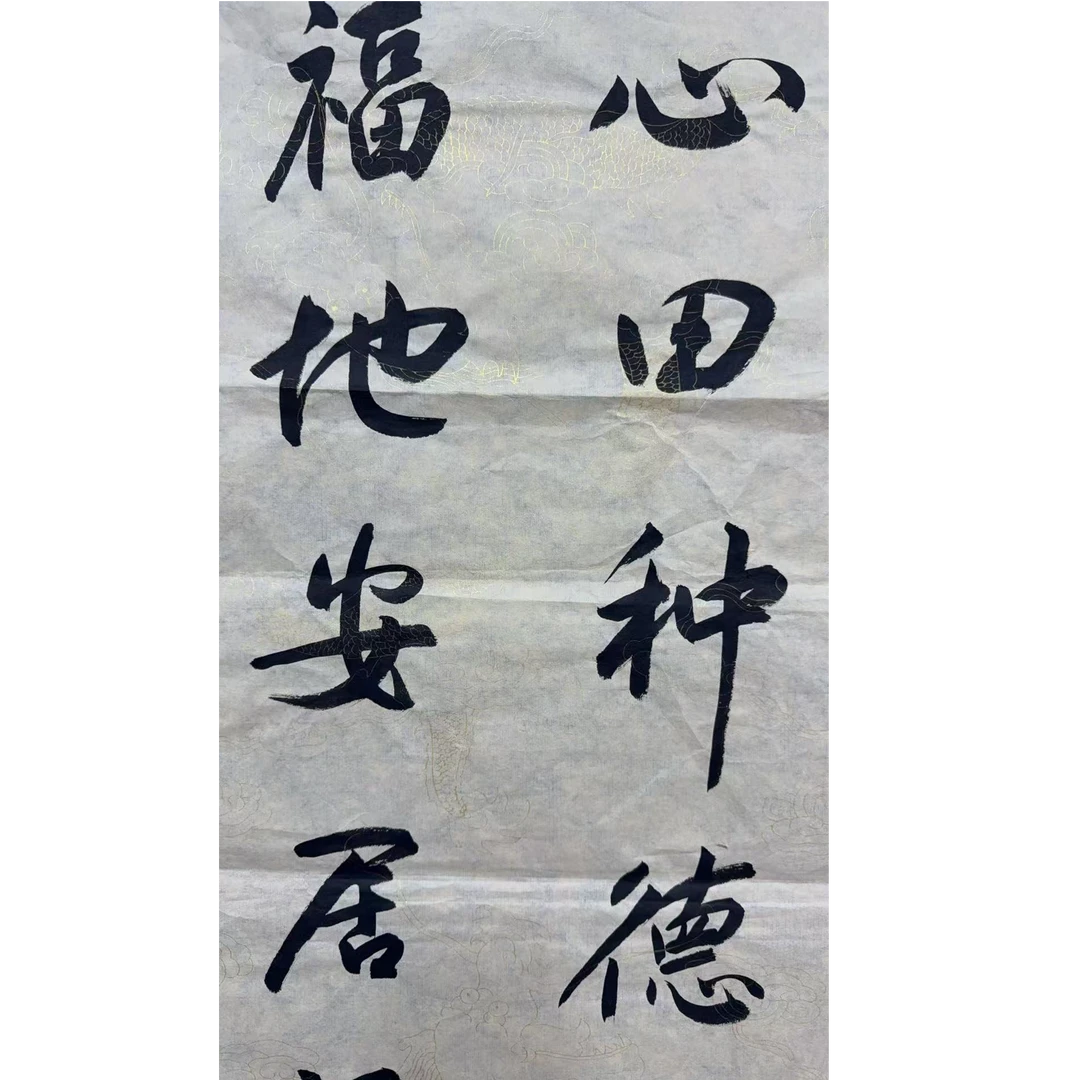 心田种德
福地安居